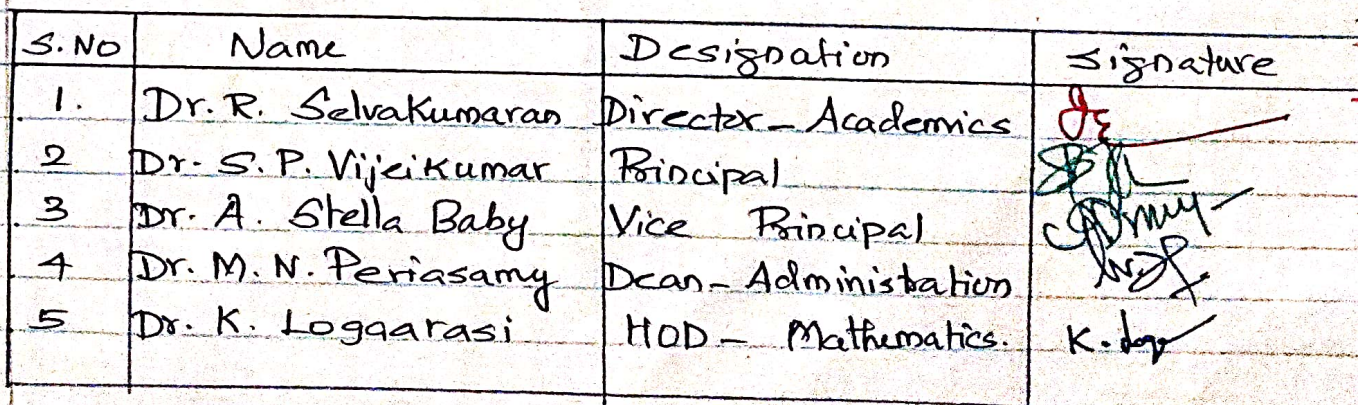 S. No Name Designation Signature
1. Dr. R. Selvakumaran Director - Academics
2 Dr. S. P. Vijeikumar Principal
3 Dr. A. Stella Baby Vice Principal
4 Dr. M. N. Periasamy Dean - Administration
5 Dr. K. Logaarasi HOD - Mathematics. K.